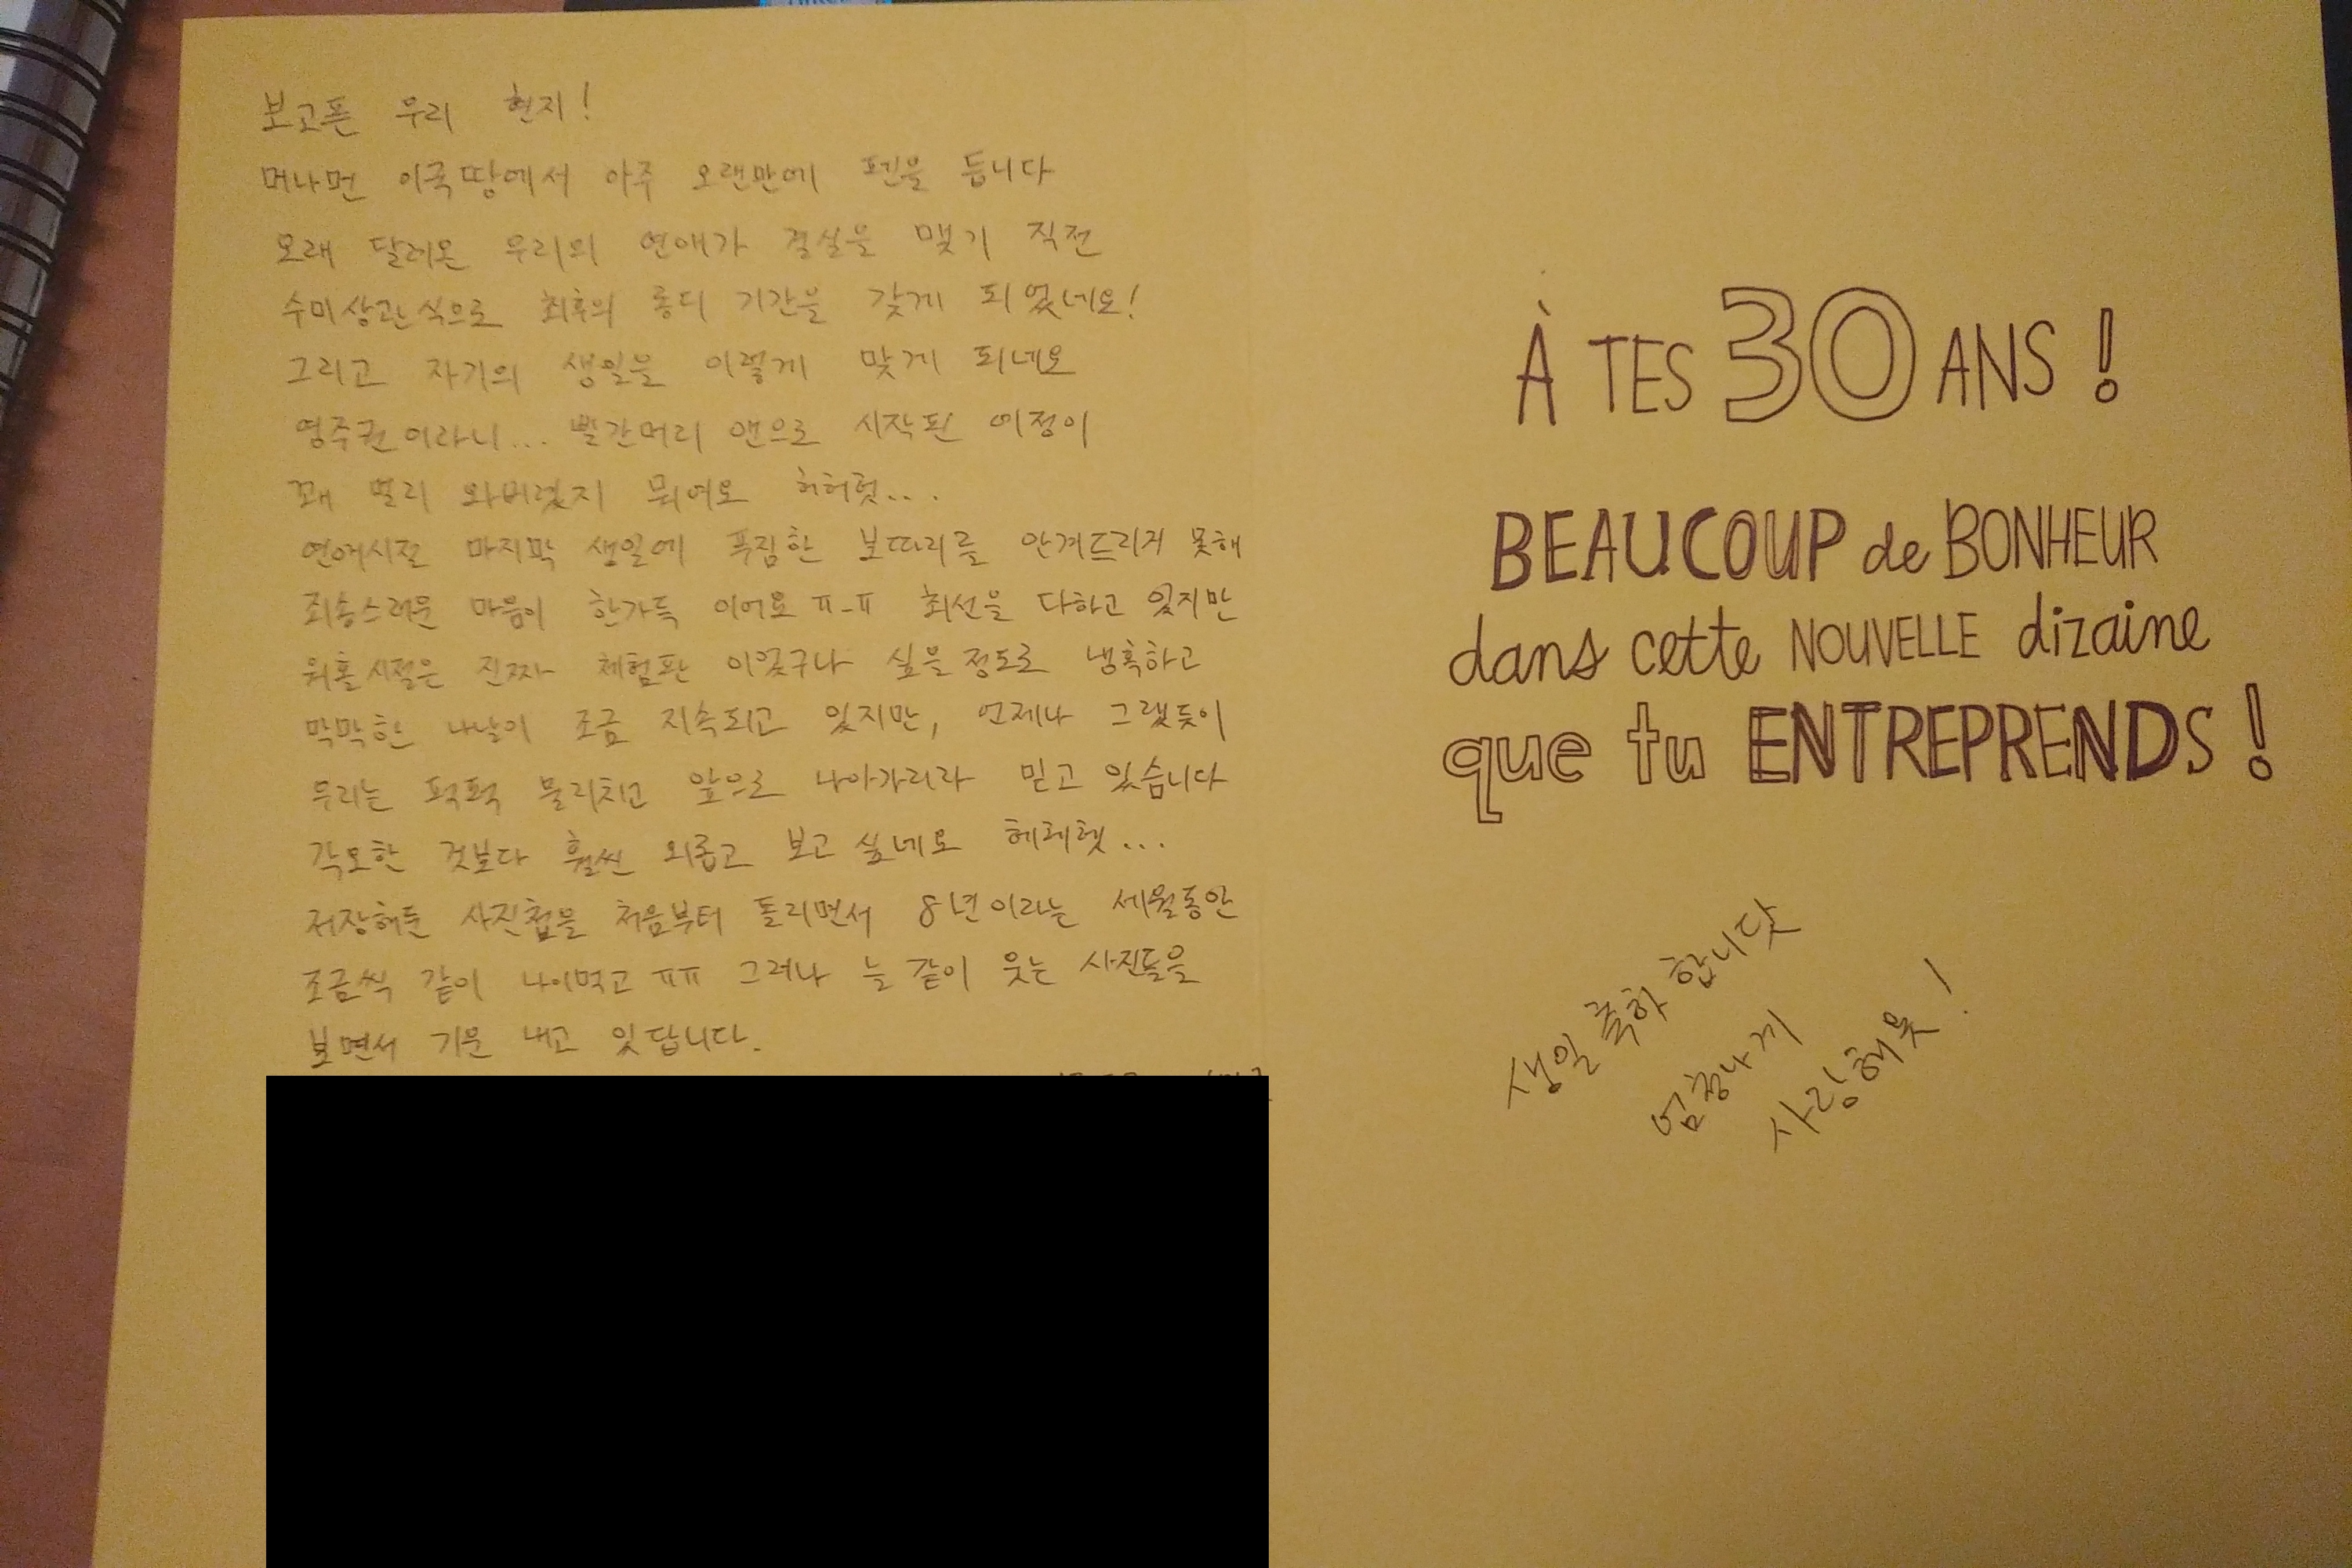 보고픈 우리 현지!
머나먼 이국땅에서 아주 오랜만에 펜을 듭니다
오래 달려온 우리의 연애가 결실을 맺기 직전
수미상관식으로 최후의 롱디 기간을 갖게 되었네요!
그리고 자기의 생일을 이렇게 맞게 되네요
영주권이라니... 빨간머리 앤으로 시작된 여정이
꽤 멀리 와버렸지 뭐여요 허허헛...
연애시절 마지막 생일에 푸짐한 보따리를 안겨드리지 못해
죄송스러운 마음이 한가득 이어요 ㅠ-ㅠ 최선을 다하고 있지만
워홀시절은 진짜 체험판 이었구나 싶을정도로 냉혹하고
막막한 나날이 조금 지속되고 있지만, 언제나 그랬듯이
우리는 퍽퍽 물리치고 앞으로 나아가리라 믿고 있습니다
각오한 것보다 훨씬 외롭고 보고싶네요 헤헤헷...
저장해둔 사진첩을 처음부터 돌리면서 8년이라는 세월동안
조금씩 같이 나이먹고 ㅠㅠ 그러나 늘 같이 웃는 사진들을
보면서 기운 내고 있답니다.
À TES 30 ANS !
BEAUCOUP de BONHEUR
dans cette NOUVELLE dizaine
que tu ENTREPRENDS !
생일 축하 합니닷
엄청나게
사랑해욧!